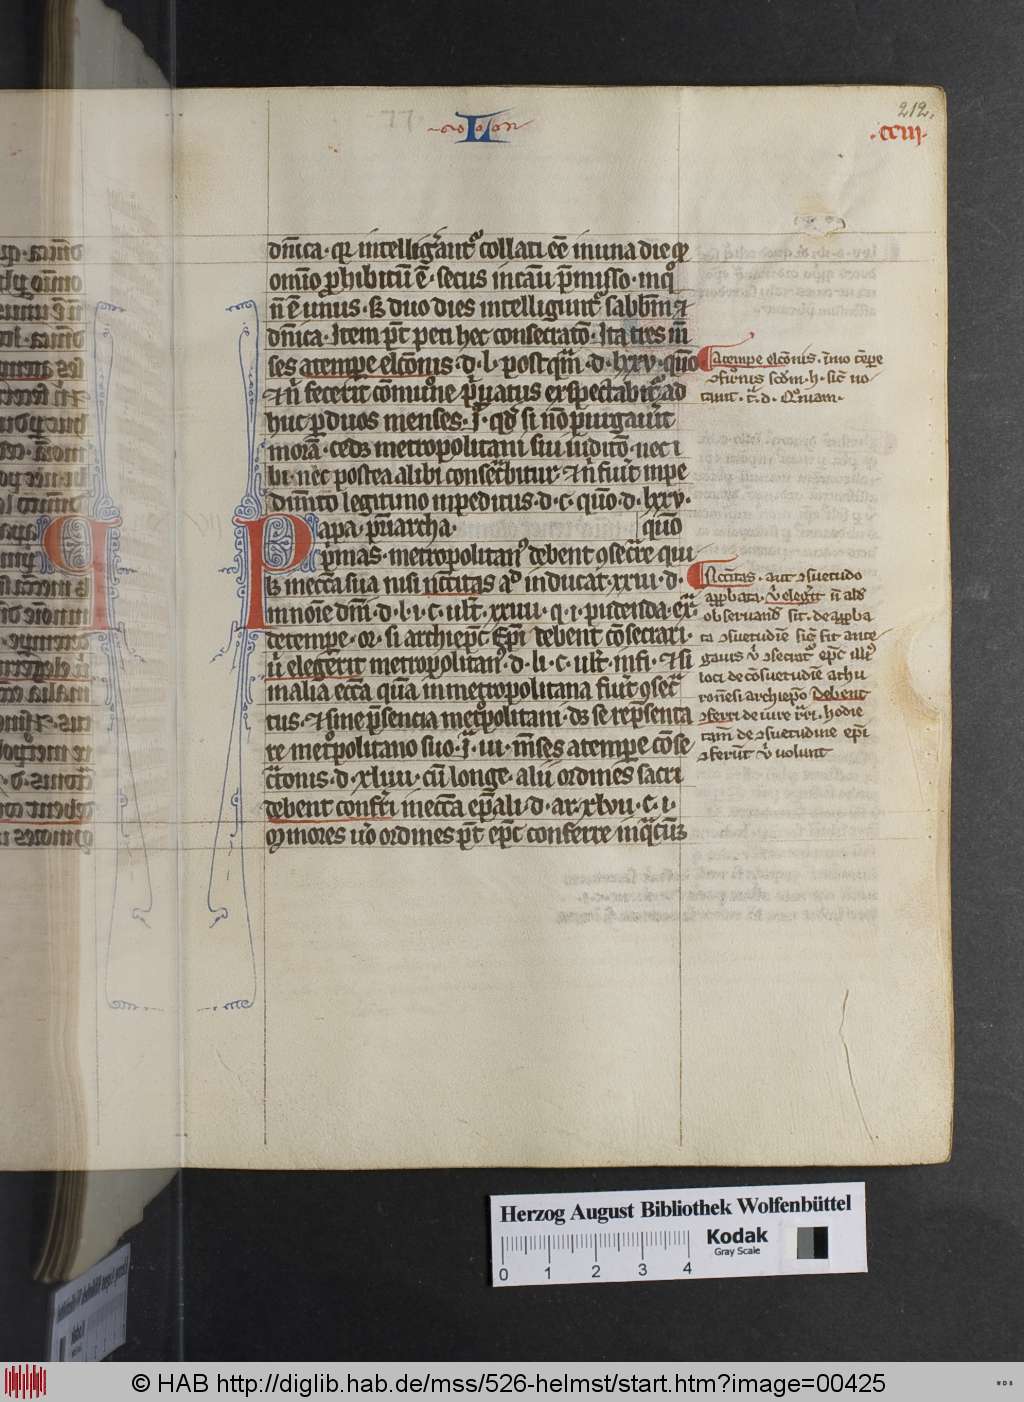 212.
·L·
·ccııj·
dn̄ica · qꝛ intelligūntᷣ collati eē in una die qꝫ
om̄īo ꝓhibitū ē · secus in casu p̄misso ·
n̄ ē unus · sꝫ duo dies intelligunt᷑ sabb̄m ⁊
dn̄ica · Item pōt peti hec consecratō · Ita tres m̄
ses a tempe elc̄onis · d · l · postqm̄ · d · lxxv · qn̄o
⁊ n̄ fecerit cōmune p̄uatus exspectabit᷑ ad
huc ꝑ duos menses · qđ si nō
morā · cedꝫ metropolitani siu nec i
bi · nec postea alibi consec̄bitur · ⁊ n̄ fuīt inpe
dim̄to legitimo inpeditus · d · c · qn̄o · d · lxxv ·
Papa · pr̄iarcha · qn̄o
p̄mas · metropolitanꝰ debent ꝯsec̄re qui
lꝫ in ecc̄a sua nisi ncc̄itas aꝰ inducat · xxiii · d ·
in noīe dn̄i · d · l · i · c · ult̄ · xxiiii · q · i · pudenda · ex̄
de tempe · or · si archiep̄c Ep̄i debent cōsecrari ·
ū elegerit metropolitanꝰ · d · li · c · ult̄ · in fi · ⁊ si
in alia ecc̄a quā in metropolitana fuīt ꝯsec̄
tus · ⁊ sine p̄sencia met᷑politani · dꝫ se rep̄senta
re met᷑politano suo · iii · m̄ses a tempe cōse
c̄tonis · d · xliiii · cū longe · alii ordines sacri
debent conferri in ecc̄a ep̄ali · d · ar · xlvii · c · i ·
Minores ūo ordines pōt ep̄c conferre in q̄cūqꝫ
A tempe elc̄onis · īmo tēpe
ꝯfirōnis scdm · h · sic̄ no
taut᷑ · c̄ · d · Qm̄iam ·
Ncc̄itas · aut ꝯsuetudo
apꝑbata · ū elegit n̄ alđ
obseruand̄ sit · de apꝑba
ta ꝯsuetudīe sic᷑ fit ante
ū ꝯsecrat᷑ ep̄c
loci de cōsuetudīe
archiep̄o debent
ꝯferri de iure · hodie
tam̄ de ꝯsuetudine ep̄i
ꝯferūt ū volunt
Herzog August Bibliothek Wolfenbüttel
Kodak
Gray Scale
0 1 2 3 4
© HAB http://diglib.hab.de/mss/526-helmst/start.htm?image=00425